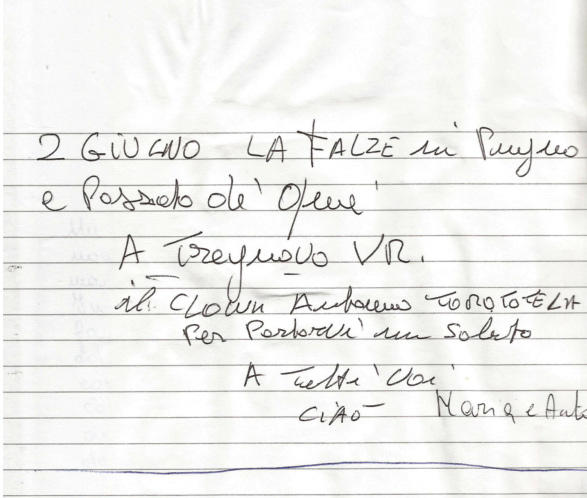 2 GIUGNO LA FALZE in Pugno
e Passato di Qui
A Tregnago VR.
il CLOWN Antonino TOROTOTELA
Per Portarvi un Saluto
A Tutti Voi
CIAO Maria e Anto